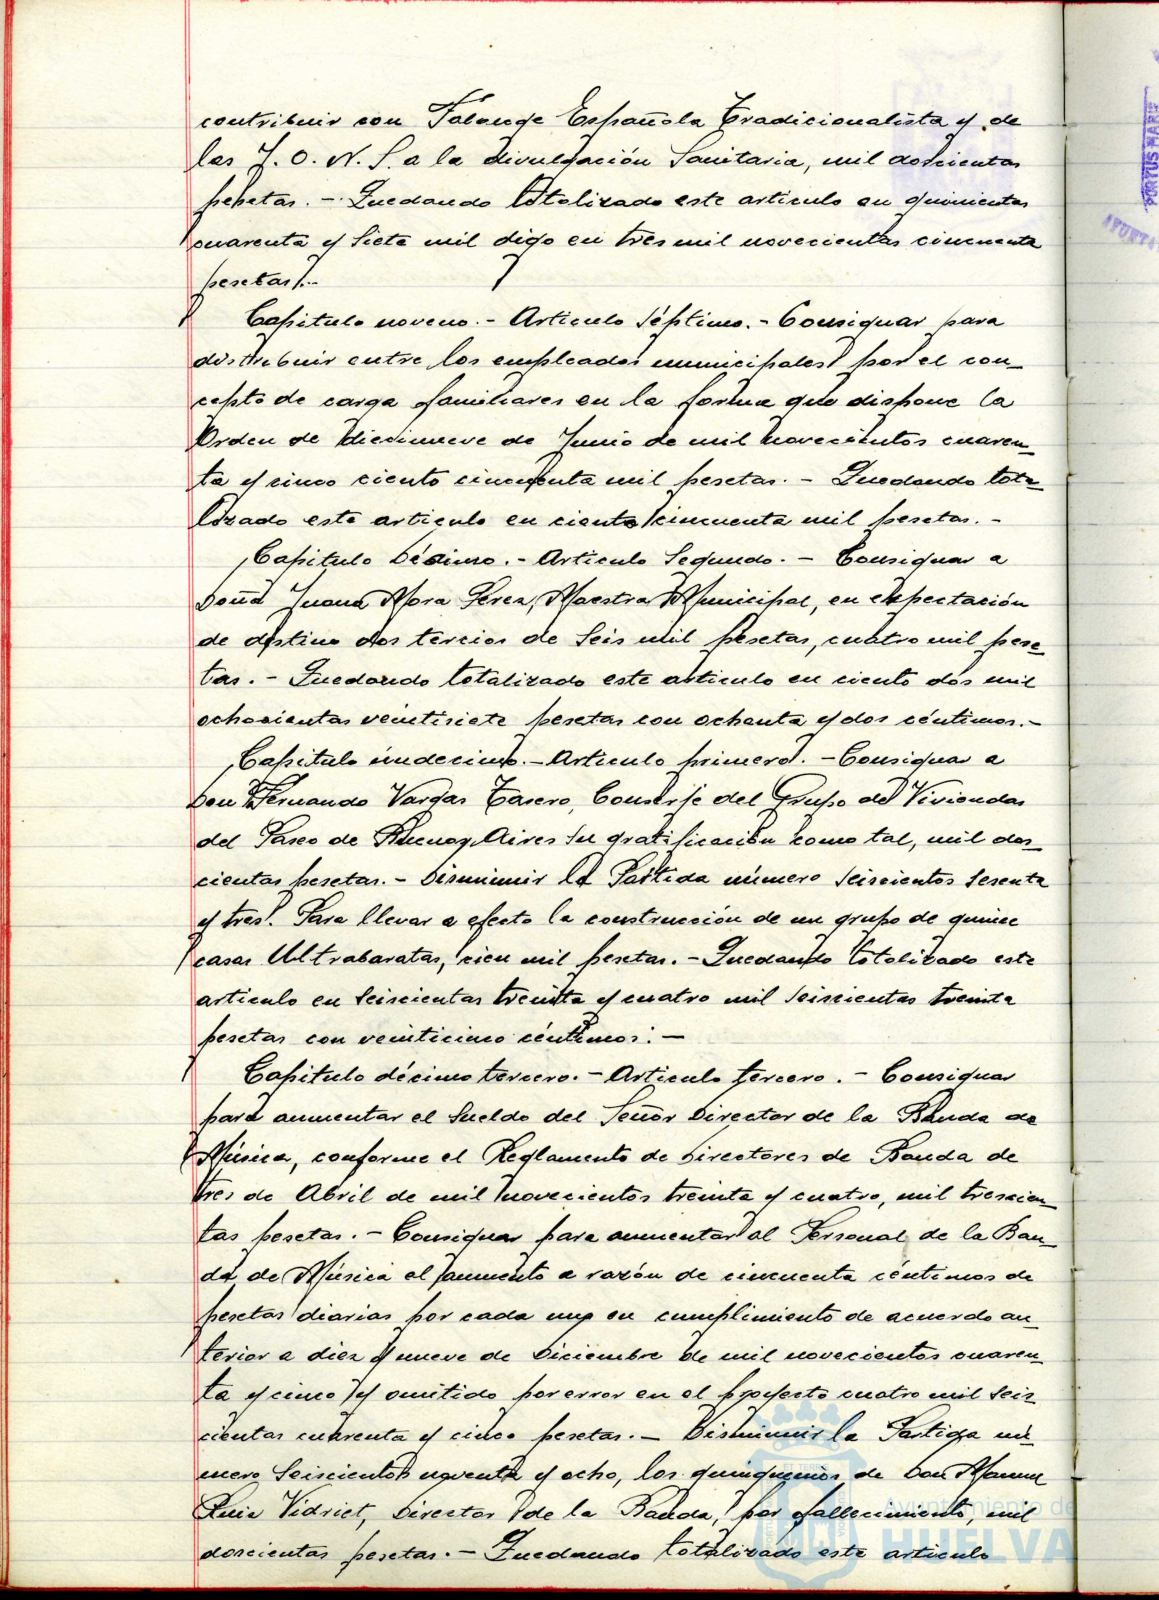 contribuir con Falange Española Tradicionalista y de
las J. O. N. S. a la divulgación Sanitaria, mil doscientas
pesetas. - Quedando totalizado este articulo en quinientas
cuarenta y siete mil digo en tres mil novecientas cincuenta
pesetas.-
Capitulo noveno. - Articulo Séptimo. - Consignar para
distribuir entre los empleados municipales por el con_
cepto de carga familiares en la forma que dispone la
Orden de diecinueve de Junio de mil novecientos cuaren_
ta y cinco ciento cincuenta mil pesetas. - Quedando tota_
lizado este articulo en ciento cincuenta mil pesetas. -
Capitulo Décimo. - Articulo Segundo. - Consignar a
Doña Juana Mora Perez, Maestra Municipal, en expectación
de destino dos tercios de Seis mil pesetas, cuatro mil pese_
tas. - Quedando totalizado este articulo en ciento dos mil
ochocientas veintisiete pesetas con ochenta y dos céntimos. -
Capitulo undecimo. - Articulo primero. - Consignar a
Don Fernando Vargas Casero, Conserje del Grupo de Viviendas
del Paseo de Buenos Aires su gratificación como tal, mil dos_
cientas pesetas. - Disminuir la Partida número Seiscientos Sesenta
y tres. Para llevar a efecto la construcción de un grupo de quince
casas Ultrabaratas, cien mil pesetas. - Quedando totalizado este
articulo en Seiscientas treinta y cuatro mil Seiscientas treinta
pesetas con veinticinco céntimos. -
Capitulo décimo tercero. - Articulo tercero. - Consignar
para aumentar el Sueldo del Señor Director de la Banda de
Música, conforme el Reglamento de Directores de Banda de
tres de Abril de mil novecientos treinta y cuatro, mil trescien_
tas pesetas. - Consignar para aumentar al Personal de la Ban_
da de Música el aumento a razón de cincuenta céntimos de
pesetas diarias por cada uno en cumplimiento de acuerdo an_
terior a diez y nueve de Diciembre de mil novecientos cuaren_
ta y cinco y omitido por error en el proyecto cuatro mil Seis
cientas cuarenta y cinco pesetas. - Disminuir la Partida nú_
mero Seiscientos noventa y ocho, los quinquenios de Don Manuel
Ruiz Vidriet, Director de la Banda, por fallecimiento, mil
doscientas pesetas. - Quedando totalizado este articulo
Ayuntamiento de
HUELVA
PORTUS MARIS